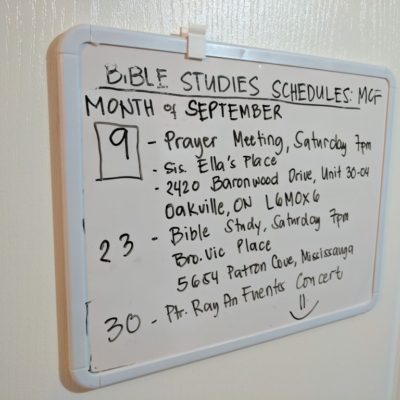 BIBLE STUDIES SCHEDULES: MGF
MONTH of SEPTEMBER
9 - Prayer Meeting, Saturday 7pm
- Sis. Ella's Place
- 2420 Baronwood Drive, Unit 30-04
Oakville, ON L6M0X6
23 - Bible Study, Saturday 7pm
Bro. Vic Place
5654 Patron Cove, Mississauga
30 - Ptr. Ray An Fuentes Concert